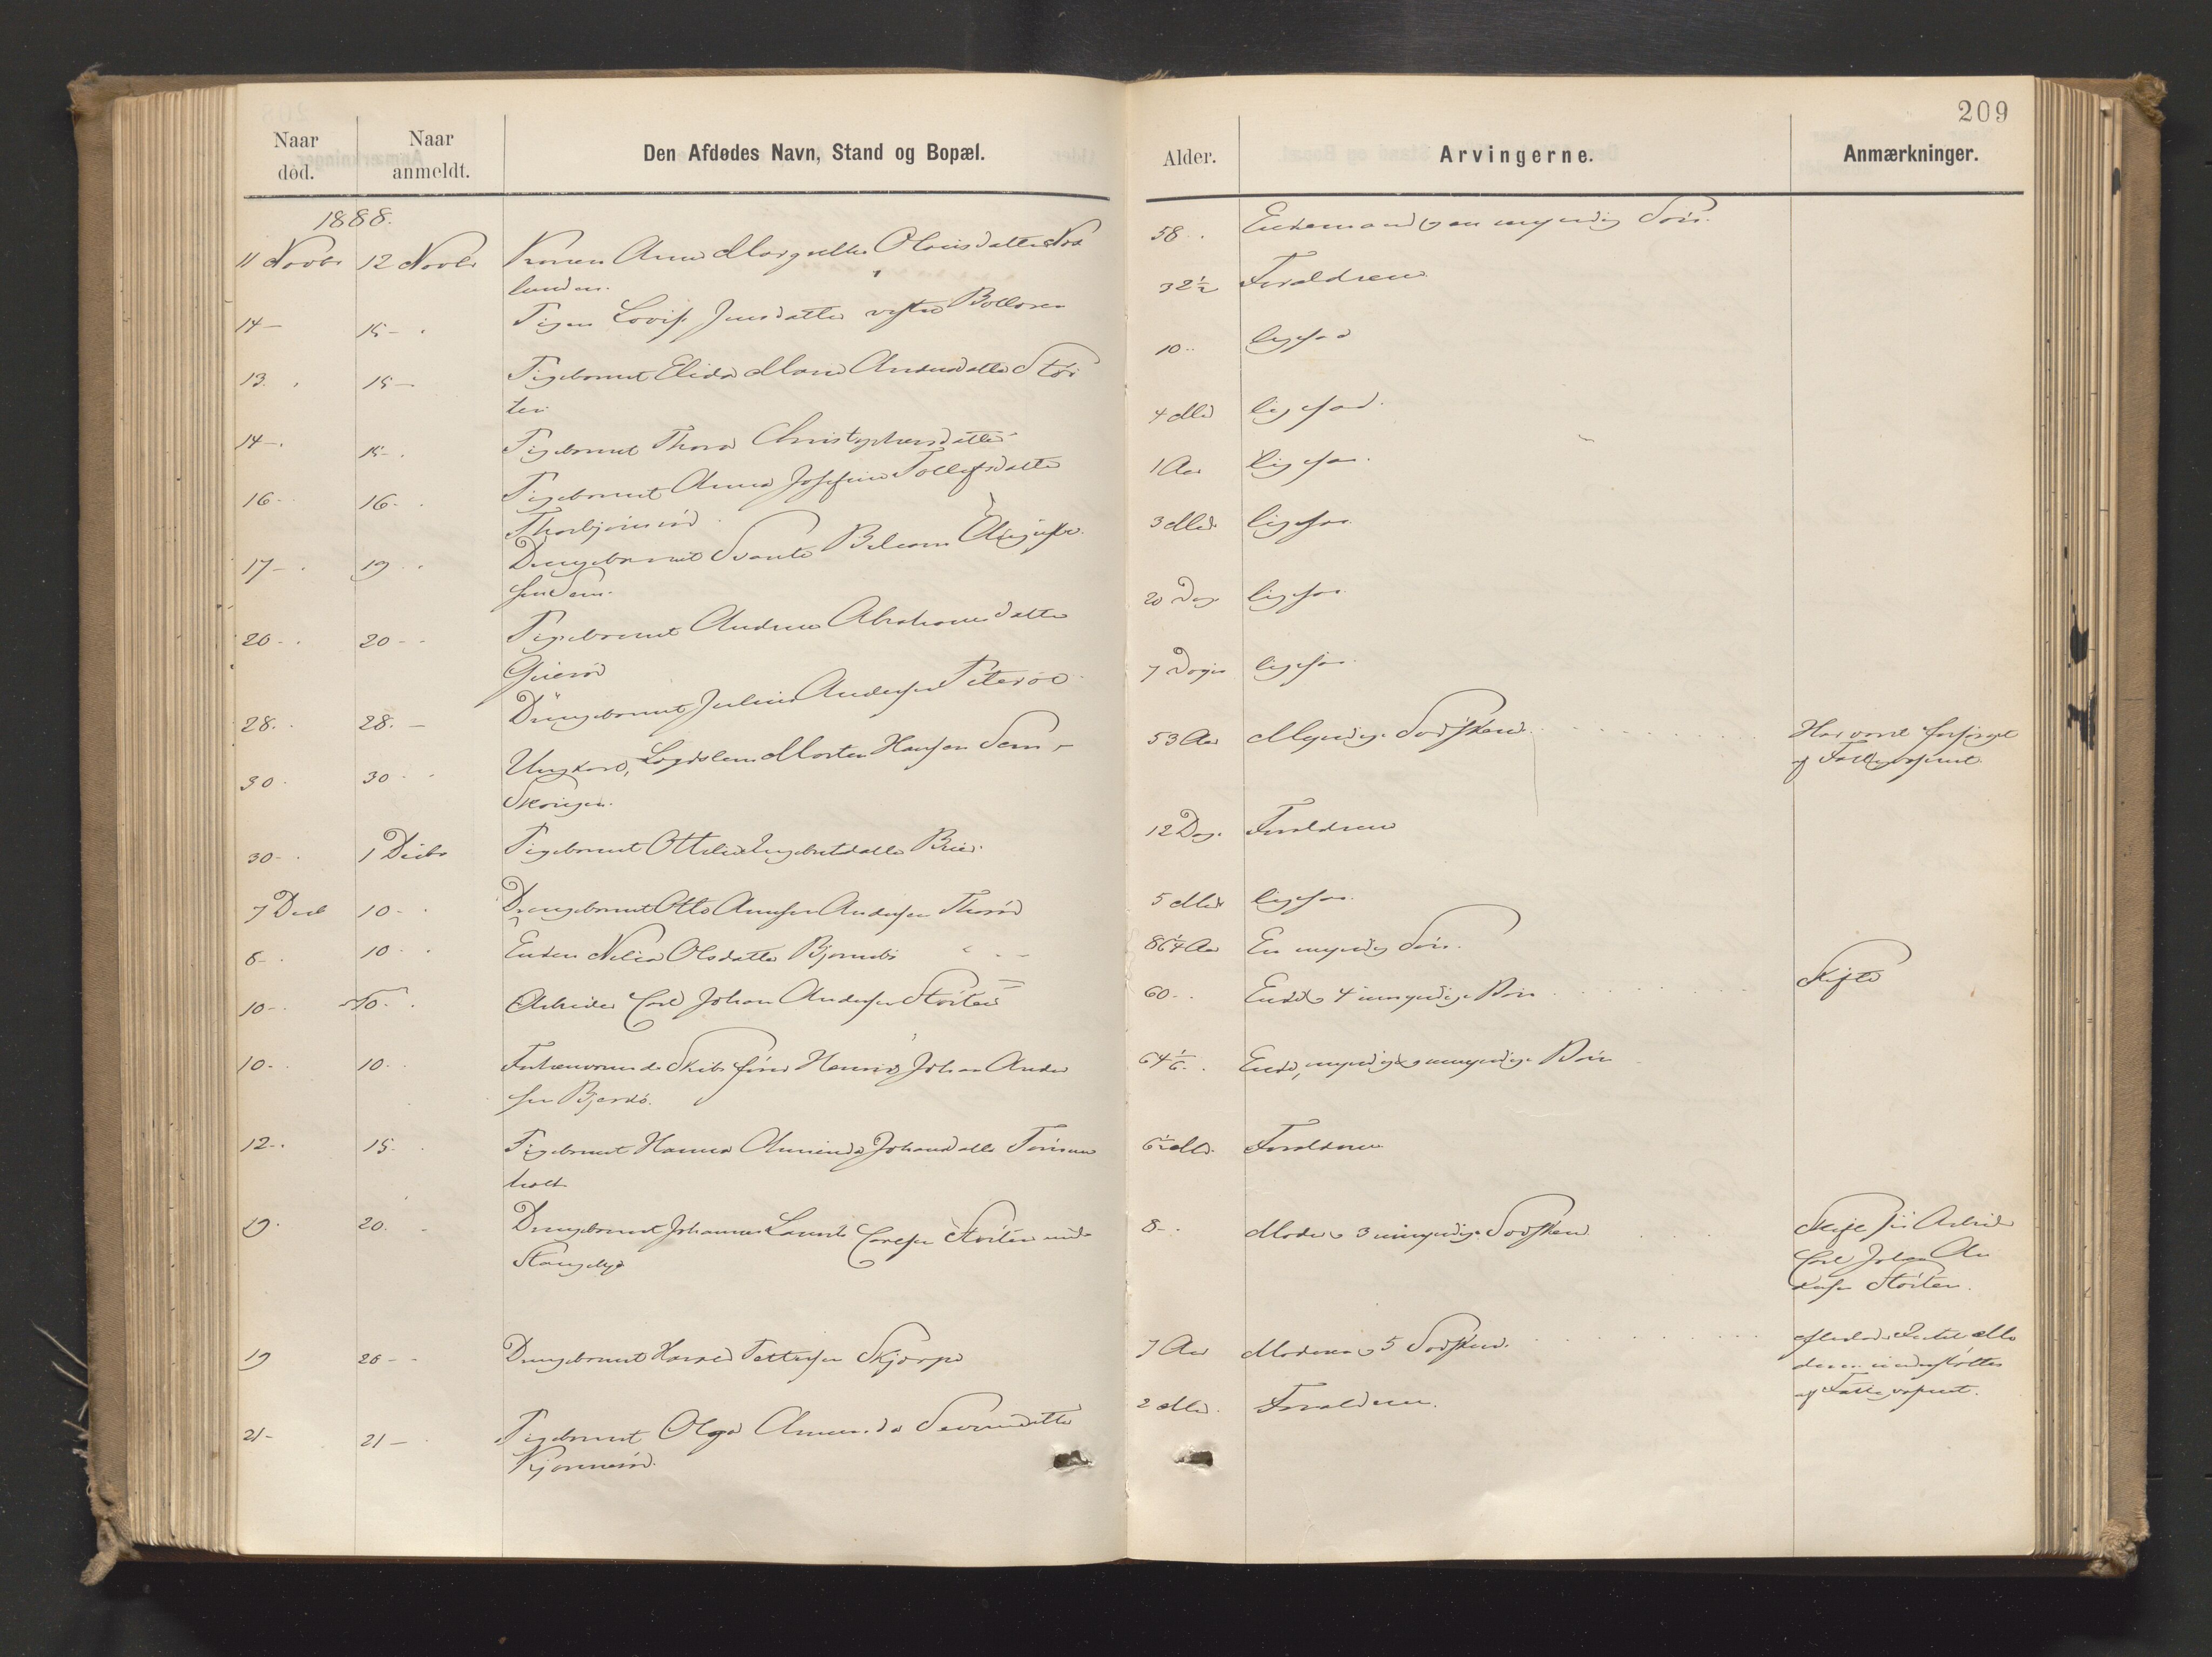 209
Naar død. Naar anmeldt. Den Afdødes Navn, Stand og Bopæl. Alder. Arvingerne. Anmærkninger.
1888.
11 Novbr 12 Novbr Konen Anne Margrethe Olausdatter 58 Enkemand og en myndig Søn.
lunden.
14 – 15 – Pigen Lovise Jensdatter vestre Bollæren 32½ Forældrene
13. 15 – Pigebarnet Elida Marie Andersdatter Stør 10 ligesaa
ten
14 – 15 – Pigebarnet Thora Christophersdatter 4 Md ligesaa.
16 – 16 – Pigebarnet Anna Josefine Tollefsdatter 1 Aar ligesaa.
Thorbjørnrød.
17 – 19 Drengebarnet Svante August 3 Md. ligesaa
sen Sem.
20 – 20 – Pigebarnet Andrea Abrahamsdatter 20 Dage ligesaa
28. 28. – Drengebarnet Julius Andersen Peterøe 7 Døgn ligesaa
30. 30 Ungkarl, Lægdslem Morten Hansen Sem – 53 Aar Myndige Sødsken Har været forsørget
Skoven. af Fattigvæsenet.
30 – 1 Decbr Pigebarnet Ottilie Ingebretsdatter 12 Dage Forældrene
7 Decb 10 – Drengebarnet Otto Andersen Thorød 5 Md ligesaa
8 – 10 Enken Nilia Olsdatter Bjørnebo 86¼ Aar En myndig Søn.
10 – 10 Arbeider Carl Johan Andersen Størten 60 – Enke & 4 umyndige Børn Skifte
10 – 10. Forhenværende Skibsfører Henrik Johan Ander 64 1/6 Enke, myndige & umyndige Børn
sen Bjerkø.
12 – 15. Pigebarnet Hanna Amanda Johansdatter 6½ Md. Forældrene
holt
19 20. Drengebarnet Johannes Laurits Carlsen Størten 8 – Moder & 3 umyndige Sødsken Skifte Arbeider
Carl Johan An
dersen Størten.
19 20 – Drengebarnet Harald Pettersen Skjerpe 7 Aar Moderen & 5 Sødsken. efterlod Intet Mo
deren understøttes
af Fattigvæsenet.
21 – 21 – Pigebarnet Olga Amanda 2 Md. Forældrene.